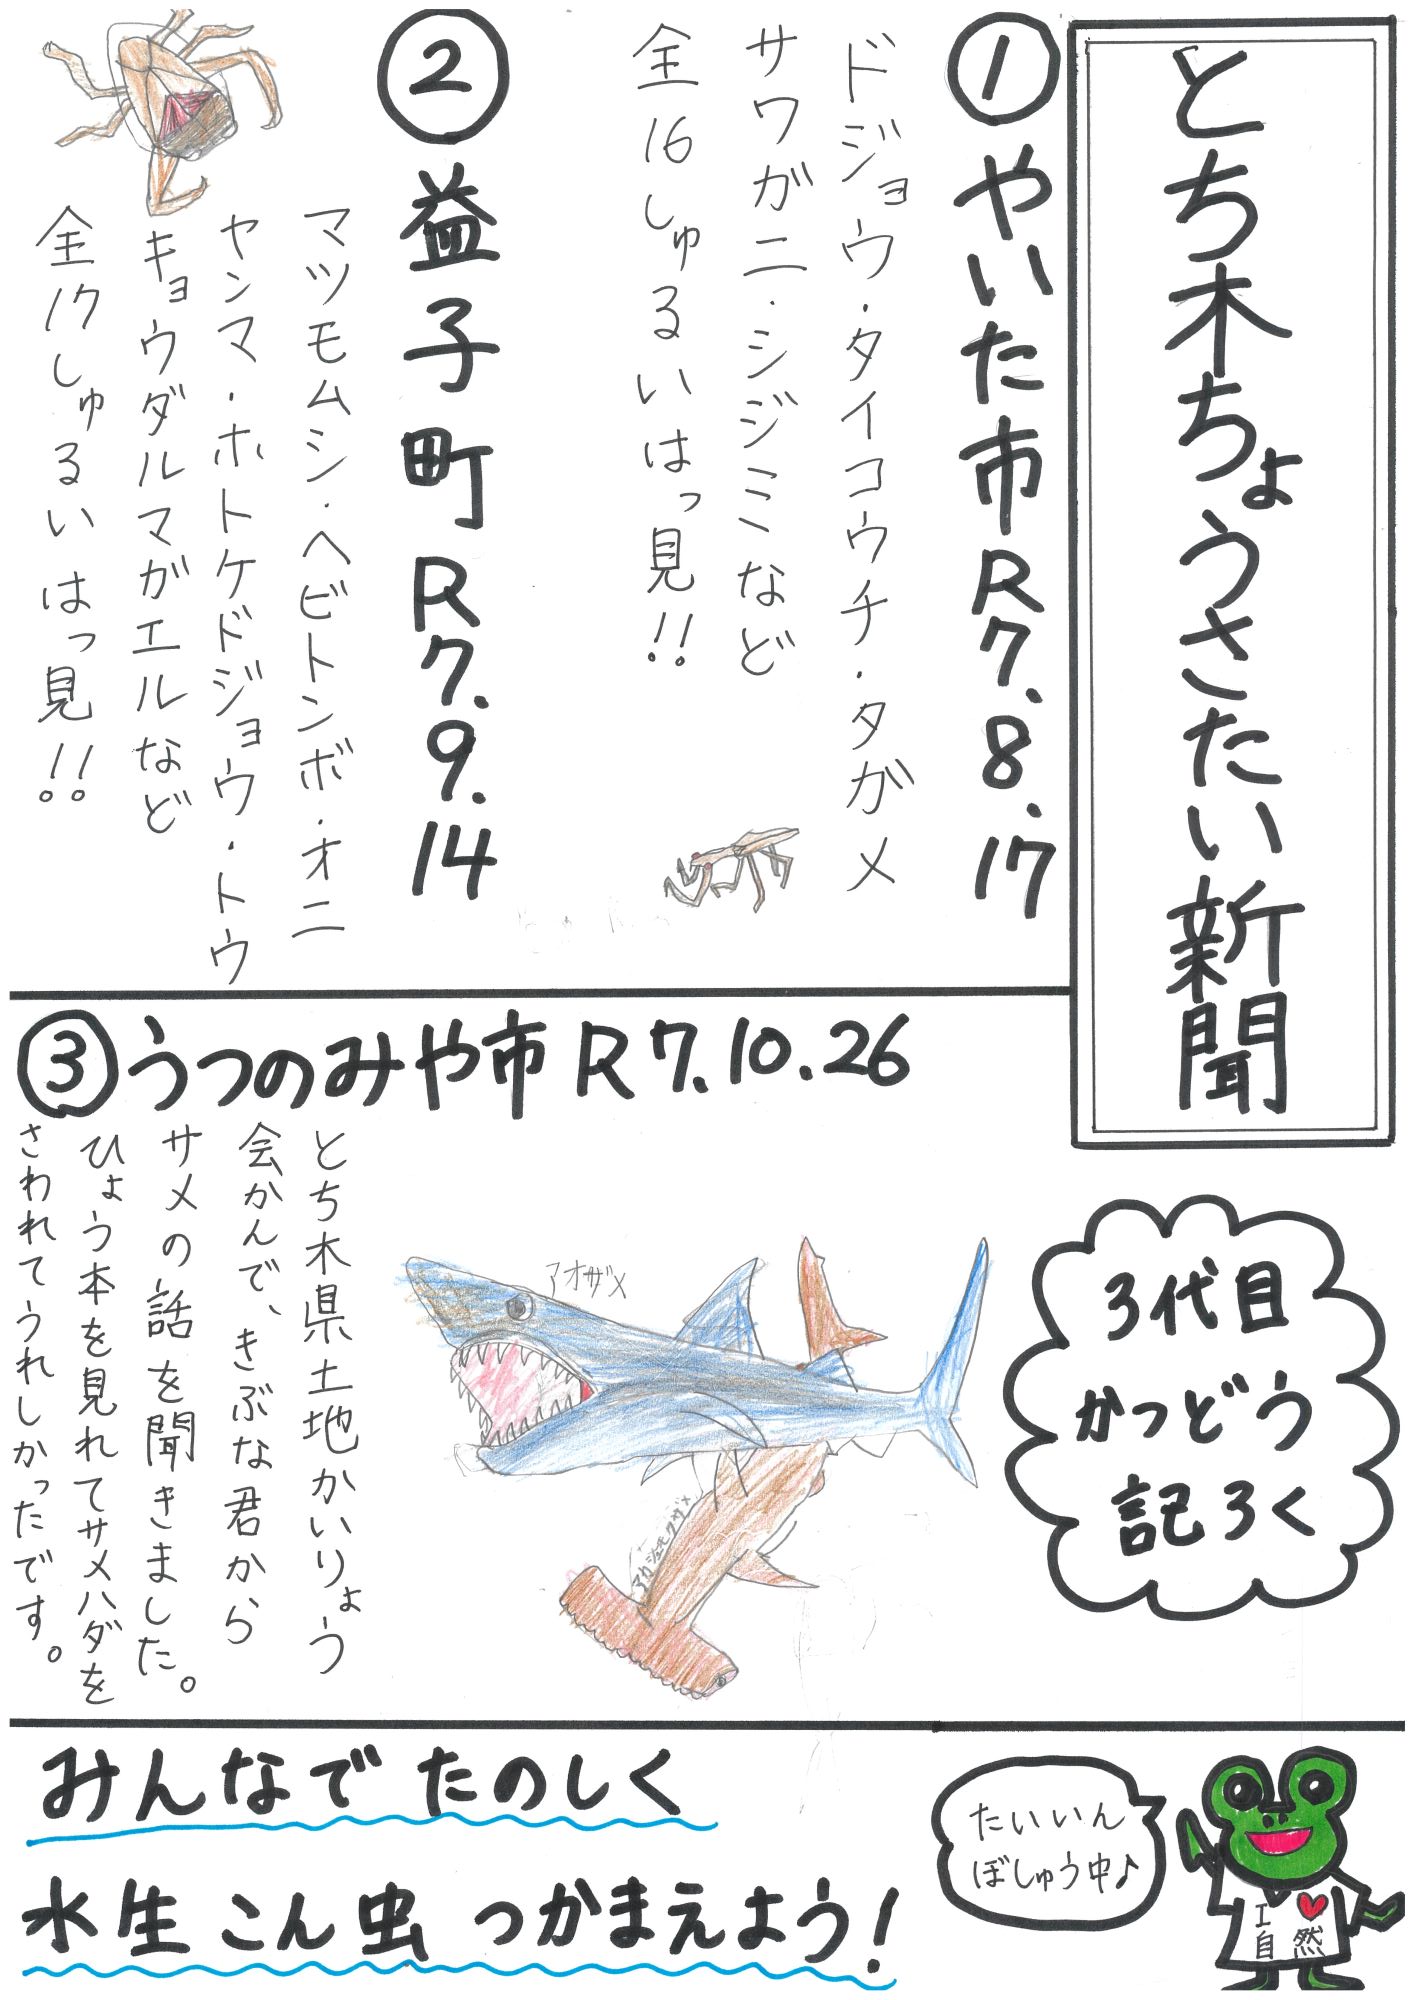 とち木ちょうさたい新聞
①やいた市R7.8.17
ドジョウ・タイコウチ・タガメ
サワガニ・シジミなど
全16しゅるいはっ見!!
②益子町R7.9.14
マツモムシ・ヘビトンボ・オニ
ヤンマ・ホトケドジョウ・トウ
キョウダルマガエルなど
全17しゅるいはっ見!!
③うつのみや市R7.10.26
とち木県土地かいりょう
会かんで、きぶな君から
サメの話を聞きました。
ひょう本を見れてサメハダを
さわれてうれしかったです。
アオザメ
アカシュモクザメ
3代目
かつどう
記ろく
みんなでたのしく
水生こん虫つかまえよう!
たいいん
ぼしゅう中♪
I♥
自然